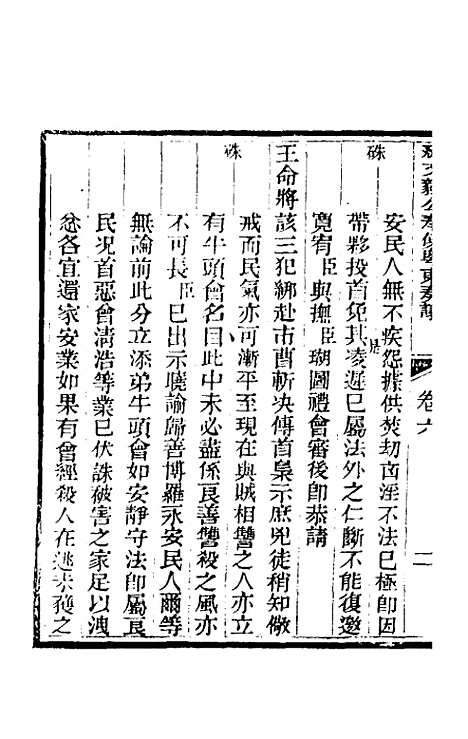 卷六
二
硃
安民人無不疾怨據供焚刧啇淫不法已極卽因
帶夥投首免其凌遲已屬法外之仁斷不能復邀
寬宥臣與撫臣瑚圖禮會審後卽恭請
王命將該三犯綁赴市曹斬决傳首梟示庶兇徒稍知儆
硃
戒而民氣亦可漸平至現在與賊相讐之人亦立
有牛頭會名目此中未必盡係良善讐殺之風亦
不可長臣巳出示曉諭歸善博羅永安民人爾等
無論前此分立添弟牛頭會如安靜守法卽屬良
民况首惡曾清浩等業巳伏誅破害之家足以洩
忿各宜還家安業如果有曾經殺人在逃未獲之